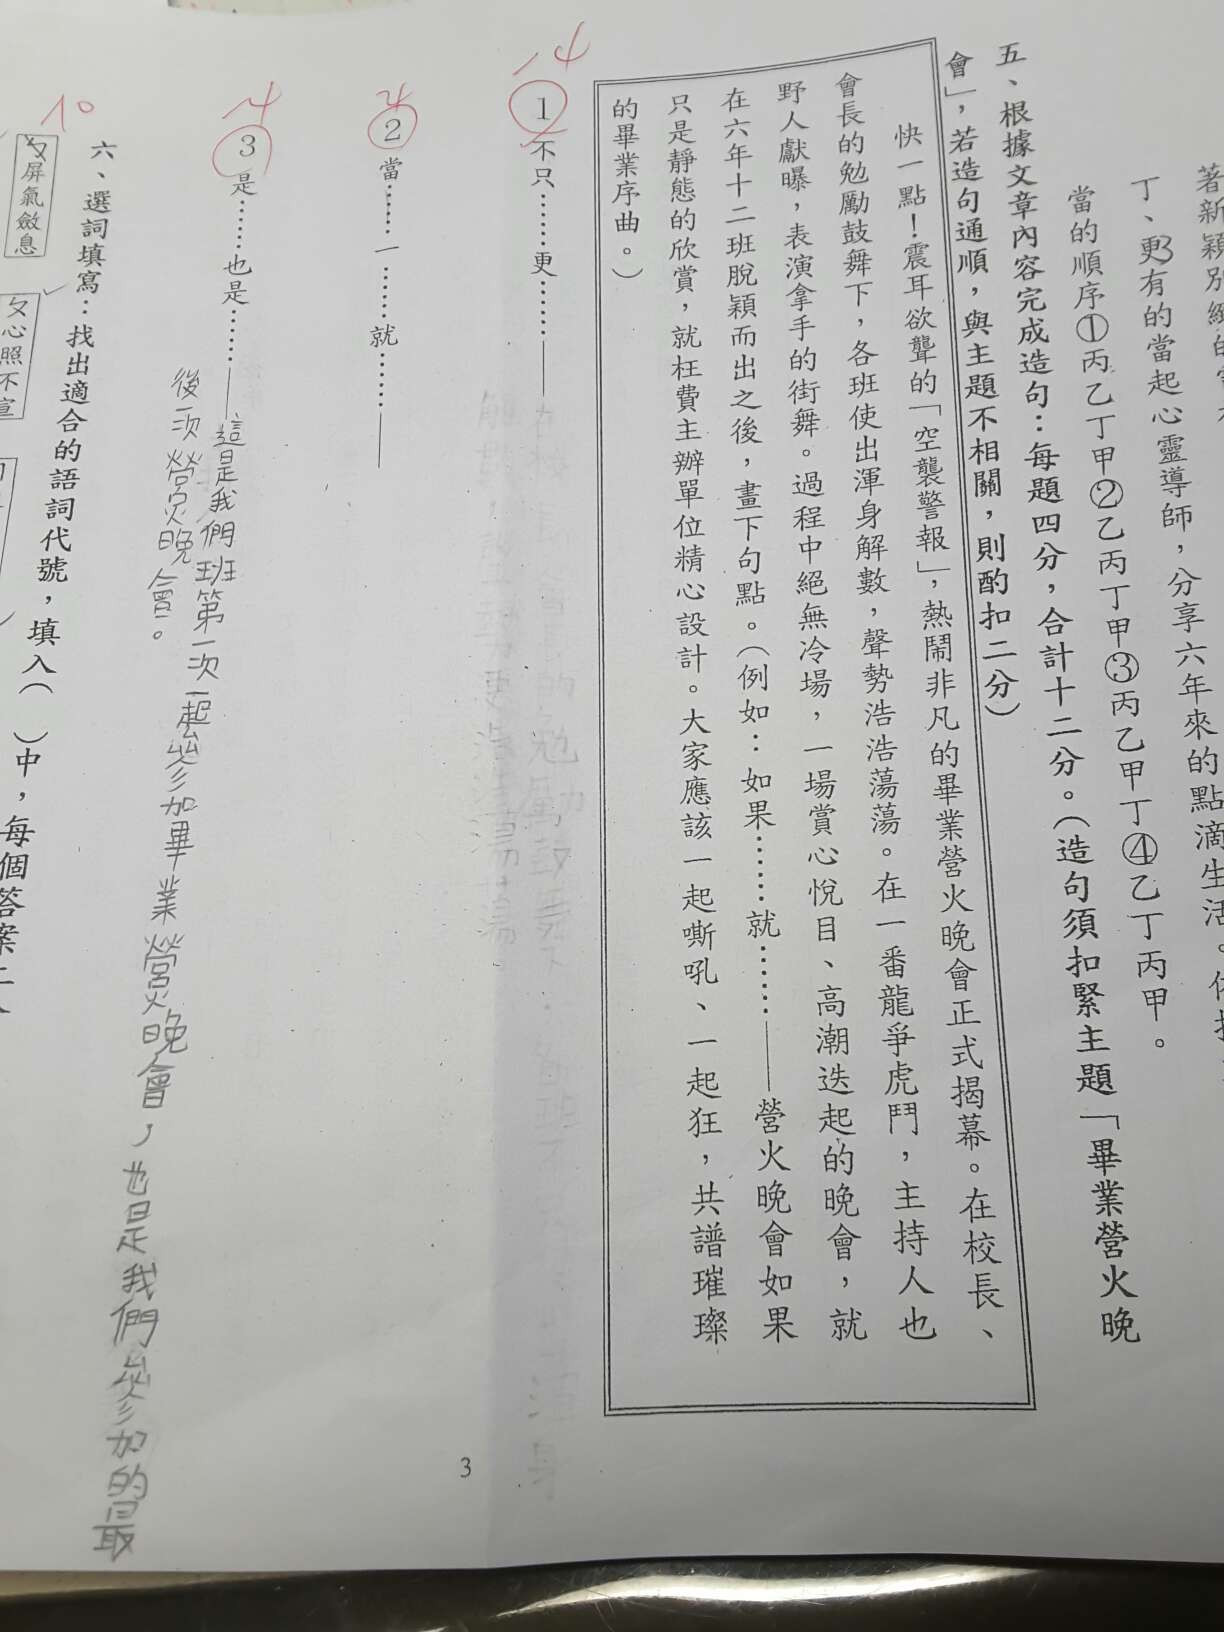 著新穎別緻的
丁、更有的當起心靈導師，分享六年來的點滴生活。
當的順序①丙乙丁甲②乙丙丁甲③丙乙甲丁④乙丁丙甲。
五、根據文章內容完成造句：每題四分，合計十二分。（造句須扣緊主題「畢業營火晚
會」，若造句通順，與主題不相關，則酌扣二分）
快一點！震耳欲聾的「空襲警報」，熱鬧非凡的畢業營火晚會正式揭幕。在校長、
會長的勉勵鼓舞下，各班使出渾身解數，聲勢浩浩蕩蕩。在一番龍爭虎鬥，主持人也
野人獻曝，表演拿手的街舞。過程中絕無冷場，一場賞心悅目、高潮迭起的晚會，就
在六年十二班脫穎而出之後，畫下句點。（例如：如果……就……——營火晚會如果
只是靜態的欣賞，就枉費主辦單位精心設計。大家應該一起嘶吼、一起狂，共譜璀璨
的畢業序曲。）
-4
1 不只……更……——
2 當……一……就……——
-4
3 是……也是……——這是我們班第一次一起參加畢業營火晚會，也是我們參加的最
後一次營火晚會。
六、選詞填寫：找出適合的語詞代號，填入（ ）中，每個答案二
-10
ㄅ屏氣斂息
ㄆ心照不宣
3